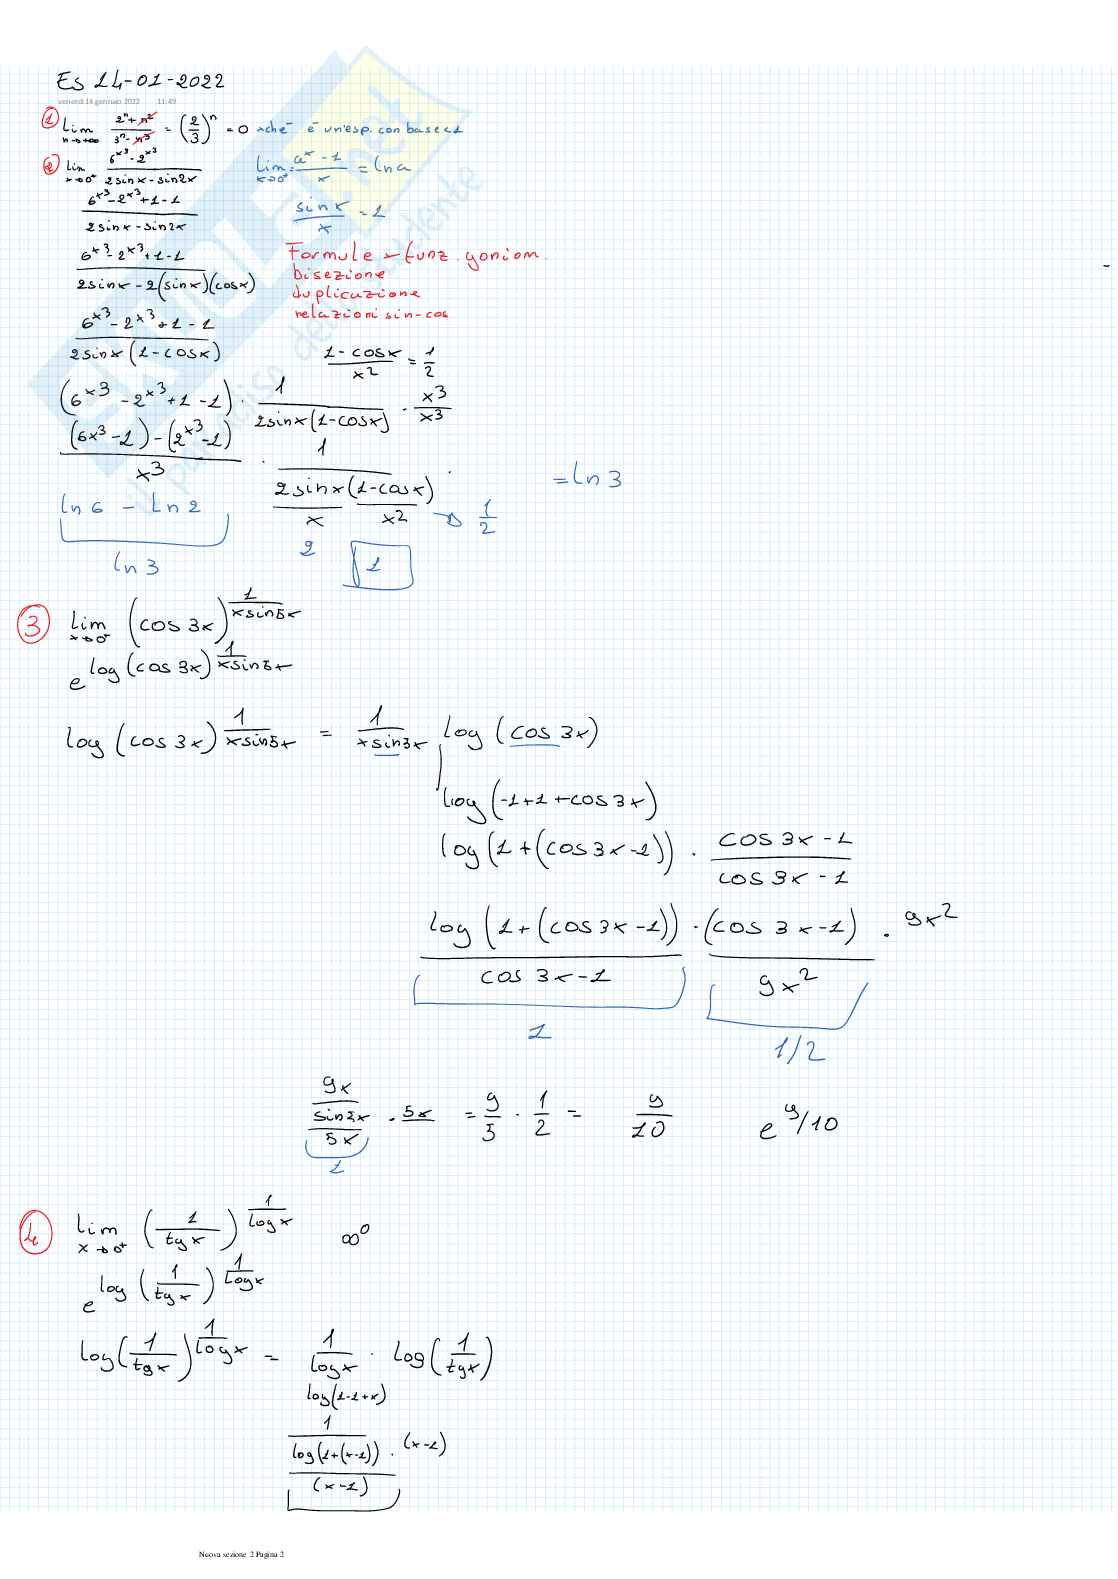 Es 14-01-2022
venerdì 14 gennaio 2022 11:49
① lim n→+∞ (2ⁿ+n²)/(3ⁿ-n³) = (2/3)ⁿ = 0 xché è un'esp. con base<1
② lim x→0⁺ (6^x³-2^x³)/(2sinx-sin2x) lim x→0⁺ (aˣ-1)/x = ln a
(6^x³-2^x³+1-1)/(2sinx-sin2x) sinx/x = 1
(6^x³-2^x³+1-1)/(2sinx-2(sinx)(cosx)) Formule x funz. goniom.
bisezione
duplicazione
relazioni sin-cos
(6^x³-2^x³+1-1)/(2sinx(1-cosx)) (1-cosx)/x² = 1/2
(6^x³-2^x³+1-1) · 1/(2sinx(1-cosx)) · x³/x³
((6x³-1)-(2^x³-1))/x³ · 1/((2sinx/x)((1-cosx)/x²)) · = ln 3
ln 6 - ln 2 → 1/2
ln 3 2 1
③ lim x→0⁺ (cos 3x)^(1/(xsin5x))
e^(log(cos 3x)^(1/(xsin5x)))
log(cos 3x)^(1/(xsin5x)) = 1/(xsin3x) log(cos 3x)
log(-1+1+cos3x)
log(1+(cos3x-1)) · (cos3x-1)/(cos3x-1)
log(1+(cos3x-1))/(cos 3x-1) · (cos 3x-1)/(9x²) · 9x²
1 1/2
9x/((sin3x)/(5x)) · 5x = 9/5 · 1/2 = 9/10 e^(9/10)
1
④ lim x→0⁺ (1/tgx)^(1/logx) ∞⁰
e^(log(1/tgx)^(1/logx))
log(1/tgx)^(1/logx) = 1/logx · log(1/tgx)
log(1-1+x)
1/((log(1+(x-1)))/(x-1) · (x-1))
Nuova sezione 2 Pagina 2